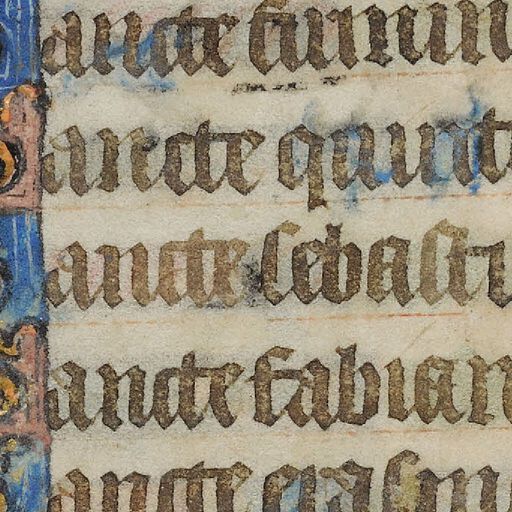 ancte
ancte quint
ancte sebasti
ancte fabian
ancte erasm